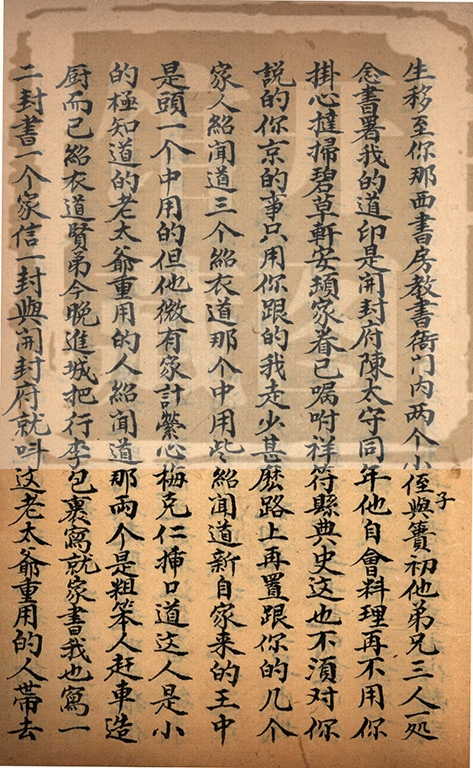 生移至你那西書房教書衙門内两个小侄子與簣初他弟兄三人一処
念書署我的道印是開封府陳太守同年他自會料理再不用你
掛心撻掃碧草軒安頓家眷已嘱咐祥符縣典史这也不湏对你
説的你京的事只用你跟的我走少甚麽路上再置跟你的几个
家人紹聞道三个紹衣道那个中用些紹聞道新自家来的王中
是頭一个中用的但他微有家計縈心梅克仁揷口道这人是小
的極知道的老太爺重用的人紹聞道那兩个是粗笨人赶車造
厨而已紹衣道賢弟今晚進城把行李包裹寫就家書我也寫一
二封書一个家信一封與開封府就呌这老太爺重用的人帶去